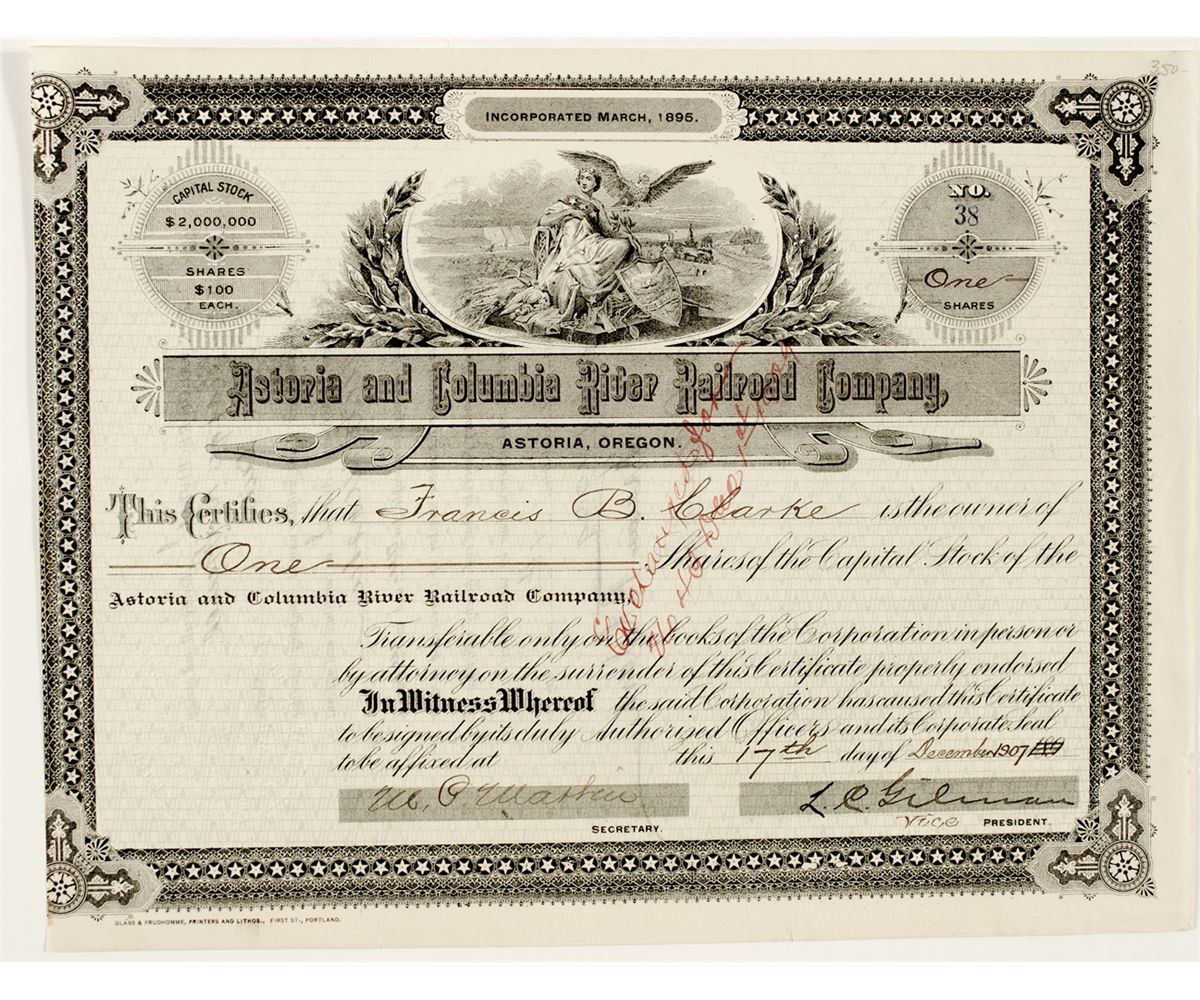 350-
INCORPORATED MARCH, 1895.
CAPITAL STOCK
$2,000,000
SHARES
$100
EACH.
NO.
38
One
SHARES
Astoria and Columbia River Railroad Company,
ASTORIA, OREGON.
This Certifies, that Francis B. Clarke is the owner of
One Shares of the Capital Stock of the
Astoria and Columbia River Railroad Company,
Transferable only on the books of the Corporation in person or
by attorney on the surrender of this Certificate properly endorsed
In Witness Whereof the said Corporation has caused this Certificate
to be signed by its duly Authorised Officers and its Corporate Seal
to be affixed at this 17th day of December 1907 189
L. C. Gilman
SECRETARY.
Vice PRESIDENT.
GLASS & PRUDHOMME, PRINTERS AND LITHOS., FIRST ST., PORTLAND.